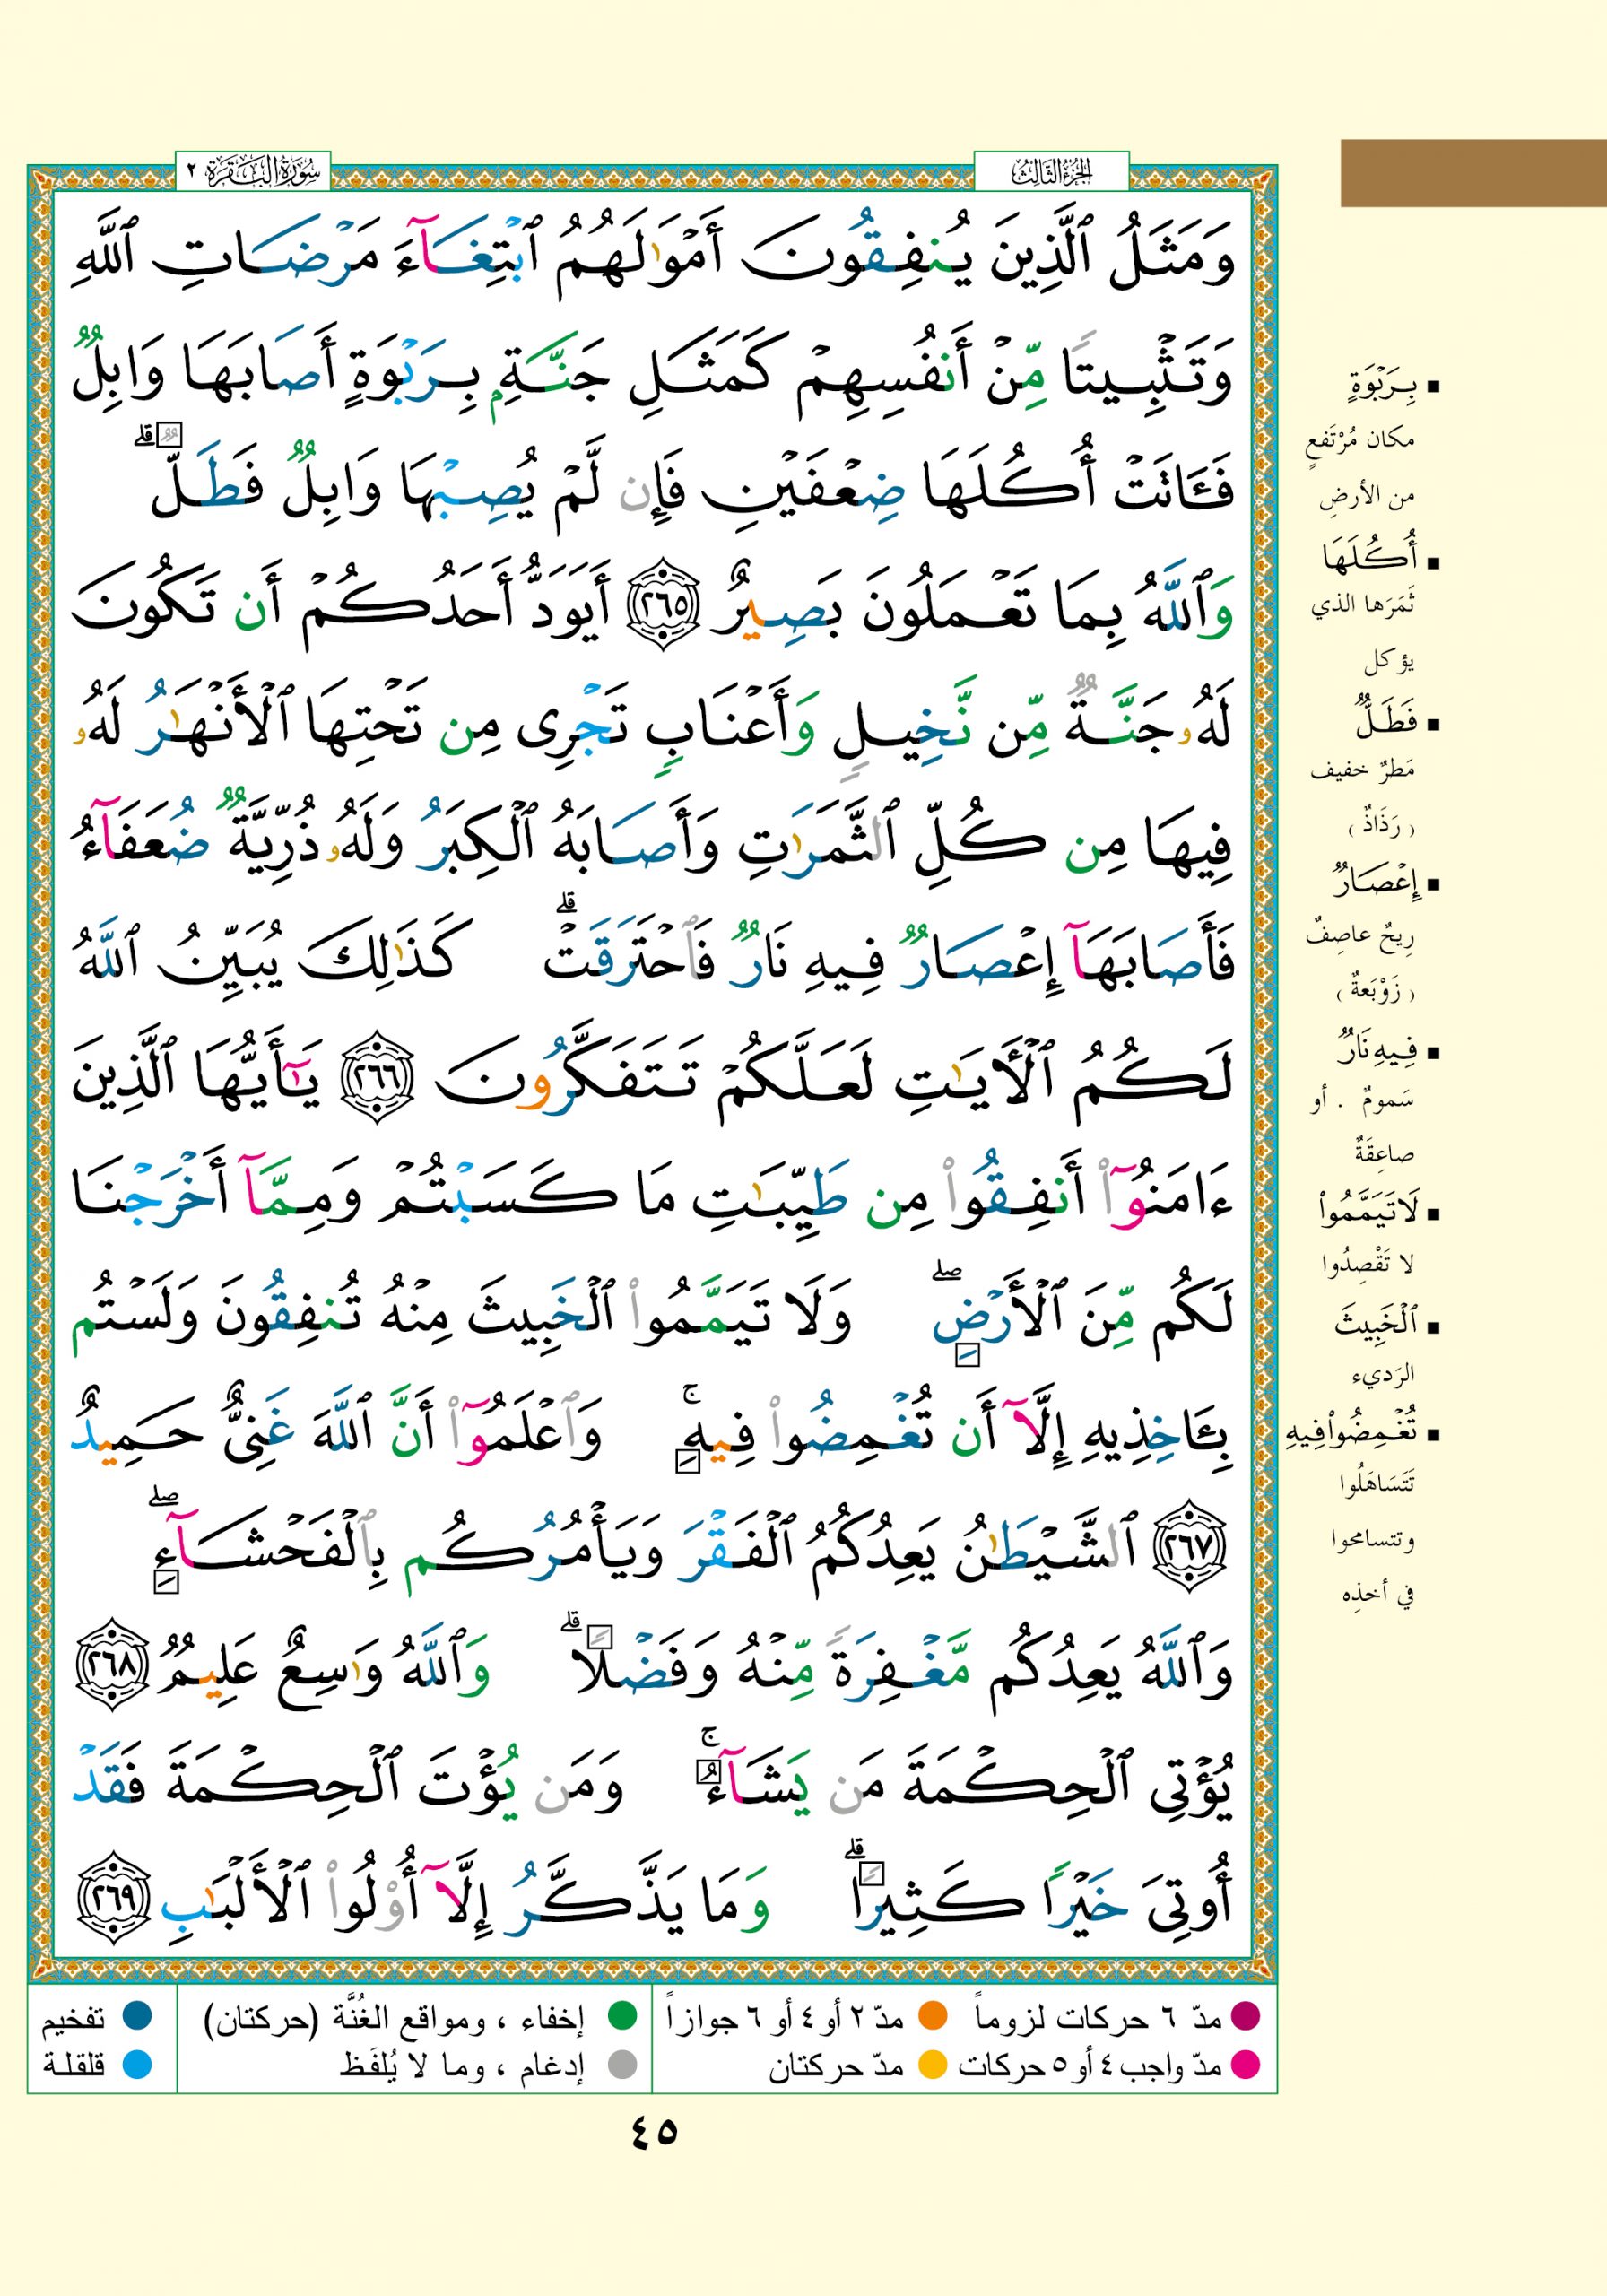 الجزء الثالث
سورة البقرة ٢
وَمَثَلُ ٱلَّذِينَ يُنفِقُونَ أَمْوَٰلَهُمُ ٱبْتِغَآءَ مَرْضَاتِ ٱللَّهِ
وَتَثْبِيتًا مِّنْ أَنفُسِهِمْ كَمَثَلِ جَنَّةٍۭ بِرَبْوَةٍ أَصَابَهَا وَابِلٌ
فَـَٔاتَتْ أُكُلَهَا ضِعْفَيْنِ فَإِن لَّمْ يُصِبْهَا وَابِلٌ فَطَلٌّ ۗ
وَٱللَّهُ بِمَا تَعْمَلُونَ بَصِيرٌ ٢٦٥ أَيَوَدُّ أَحَدُكُمْ أَن تَكُونَ
لَهُۥ جَنَّةٌ مِّن نَّخِيلٍ وَأَعْنَابٍ تَجْرِى مِن تَحْتِهَا ٱلْأَنْهَٰرُ لَهُۥ
فِيهَا مِن كُلِّ ٱلثَّمَرَٰتِ وَأَصَابَهُ ٱلْكِبَرُ وَلَهُۥ ذُرِّيَّةٌ ضُعَفَآءُ
فَأَصَابَهَآ إِعْصَارٌ فِيهِ نَارٌ فَٱحْتَرَقَتْ ۗ كَذَٰلِكَ يُبَيِّنُ ٱللَّهُ
لَكُمُ ٱلْأَيَٰتِ لَعَلَّكُمْ تَتَفَكَّرُونَ ٢٦٦ يَٰٓأَيُّهَا ٱلَّذِينَ
ءَامَنُوٓا۟ أَنفِقُوا۟ مِن طَيِّبَٰتِ مَا كَسَبْتُمْ وَمِمَّآ أَخْرَجْنَا
لَكُم مِّنَ ٱلْأَرْضِ ۖ وَلَا تَيَمَّمُوا۟ ٱلْخَبِيثَ مِنْهُ تُنفِقُونَ وَلَسْتُم
بِـَٔاخِذِيهِ إِلَّآ أَن تُغْمِضُوا۟ فِيهِ ۚ وَٱعْلَمُوٓا۟ أَنَّ ٱللَّهَ غَنِىٌّ حَمِيدٌ
٢٦٧ ٱلشَّيْطَٰنُ يَعِدُكُمُ ٱلْفَقْرَ وَيَأْمُرُكُم بِٱلْفَحْشَآءِ ۖ
وَٱللَّهُ يَعِدُكُم مَّغْفِرَةً مِّنْهُ وَفَضْلًا ۗ وَٱللَّهُ وَٰسِعٌ عَلِيمٌ ٢٦٨
يُؤْتِى ٱلْحِكْمَةَ مَن يَشَآءُ ۚ وَمَن يُؤْتَ ٱلْحِكْمَةَ فَقَدْ
أُوتِىَ خَيْرًا كَثِيرًا ۗ وَمَا يَذَّكَّرُ إِلَّآ أُو۟لُوا۟ ٱلْأَلْبَٰبِ ٢٦٩
▪ بِرَبْوَةٍ
مكان مُرْتَفعٍ
من الأرضِ
▪ أُكُلَهَا
ثَمَرَها الذي
يؤكل
▪ فَطَلٌّ
مَطرٌ خفيف
( رَذَاذٌ )
▪ إِعْصَارٌ
رِيحٌ عاصِفٌ
( زَوْبَعةٌ )
▪ فِيهِ نَارٌ
سَمومٌ . أو
صاعِقَةٌ
▪ لَا تَيَمَّمُوا۟
لا تَقْصِدُوا
▪ ٱلْخَبِيثَ
الرَديء
▪ تُغْمِضُوا۟ فِيهِ
تَتَسَاهَلُوا
وتتسامحوا
في أخذِه
مدّ ٦ حركات لزوماً
مدّ ٢ أو ٤ أو ٦ جوازاً
إخفاء ، ومواقع الغُنَّة (حركتان)
تفخيم
مدّ واجب ٤ أو ٥ حركات
مدّ حركتان
إدغام ، وما لا يُلفَظ
قلقلة
٤٥